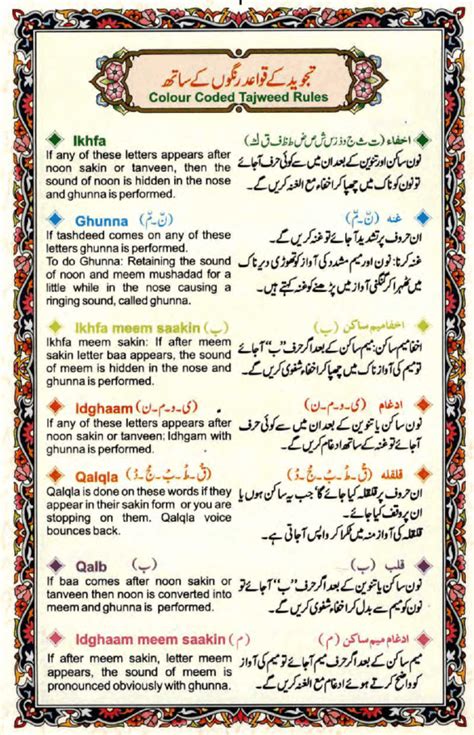 تجوید کے قواعد رنگوں کے ساتھ
Colour Coded Tajweed Rules
Ikhfa
If any of these letters appears after
noon sakin or tanveen, then the
sound of noon is hidden in the nose
and ghunna is performed.
اخفاء (ت ث ج د ذ ز س ش ص ض ط ظ ف ق ك)
نون ساکن اور تنوین کے بعد ان میں سے کوئی حرف آجائے
تو نون کو ناک میں چھپا کر اخفاء مع الغنہ کریں گے۔
Ghunna (نّ۔ مّ)
If tashdeed comes on any of these
letters ghunna is performed.
To do Ghunna: Retaining the sound
of noon and meem mushadad for a
little while in the nose causing a
ringing sound, called ghunna.
غنہ (نّ۔ مّ)
ان حروف پر تشدید آجائے تو غنہ کریں گے۔
غنہ کرنا: نون اور میم مشدد کی آواز کو تھوڑی دیر ناک
میں ٹھہرا کر گنگنی آواز میں پڑھنے کو غنہ کہتے ہیں۔
Ikhfa meem saakin (ب)
Ikhfa meem sakin: If after meem
sakin letter baa appears, the sound
of meem is hidden in the nose and
ghunna is performed.
اخفا میم ساکن (ب)
اخفا میم ساکن: میم ساکن کے بعد اگر حرف ”ب“ آجائے
تو میم کی آواز ناک میں چھپا کر اخفاء شفوی کریں گے۔
Idghaam (ی۔و۔م۔ن)
If any of these letters appears after
noon sakin or tanveen; Idhgam with
ghunna is performed.
ادغام (ی۔و۔م۔ن)
نون ساکن یا تنوین کے بعد ان میں سے کوئی حرف
آجائے تو غنہ کے ساتھ ادغام کریں گے۔
Qalqla (قْ۔ طْ۔ بْ۔ جْ۔ دْ)
Qalqla is done on these words if they
appear in their sakin form or you are
stopping on them. Qalqla voice
bounces back.
قلقلہ (قْ۔ طْ۔ بْ۔ جْ۔ دْ)
ان حروف پر قلقلہ کیا جائے گا جب یہ ساکن ہوں یا
ان پر وقف کیا جائے۔
قلقلہ کی آواز منہ میں ٹکرا کر واپس آجاتی ہے۔
Qalb (ب)
If baa comes after noon sakin or
tanveen then noon is converted into
meem and ghunna is performed.
قلب (ب)
نون ساکن یا تنوین کے بعد اگر حرف ”ب“ آجائے تو
نون کو میم سے بدل کر اخفاء شفوی کریں گے۔
Idghaam meem saakin (م)
If after meem sakin, letter meem
appears, the sound of meem is
pronounced obviously with ghunna.
ادغام میم ساکن (م)
میم ساکن کے بعد اگر حرف میم آجائے تو میم کی آواز
کو واضح کرتے ہوئے ادغام مع الغنہ کریں گے۔